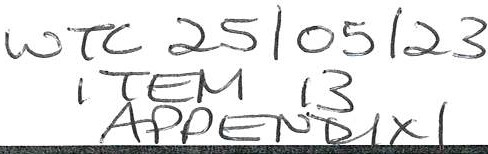 WTC 25/05/23
ITEM 13
APPENDIX 1